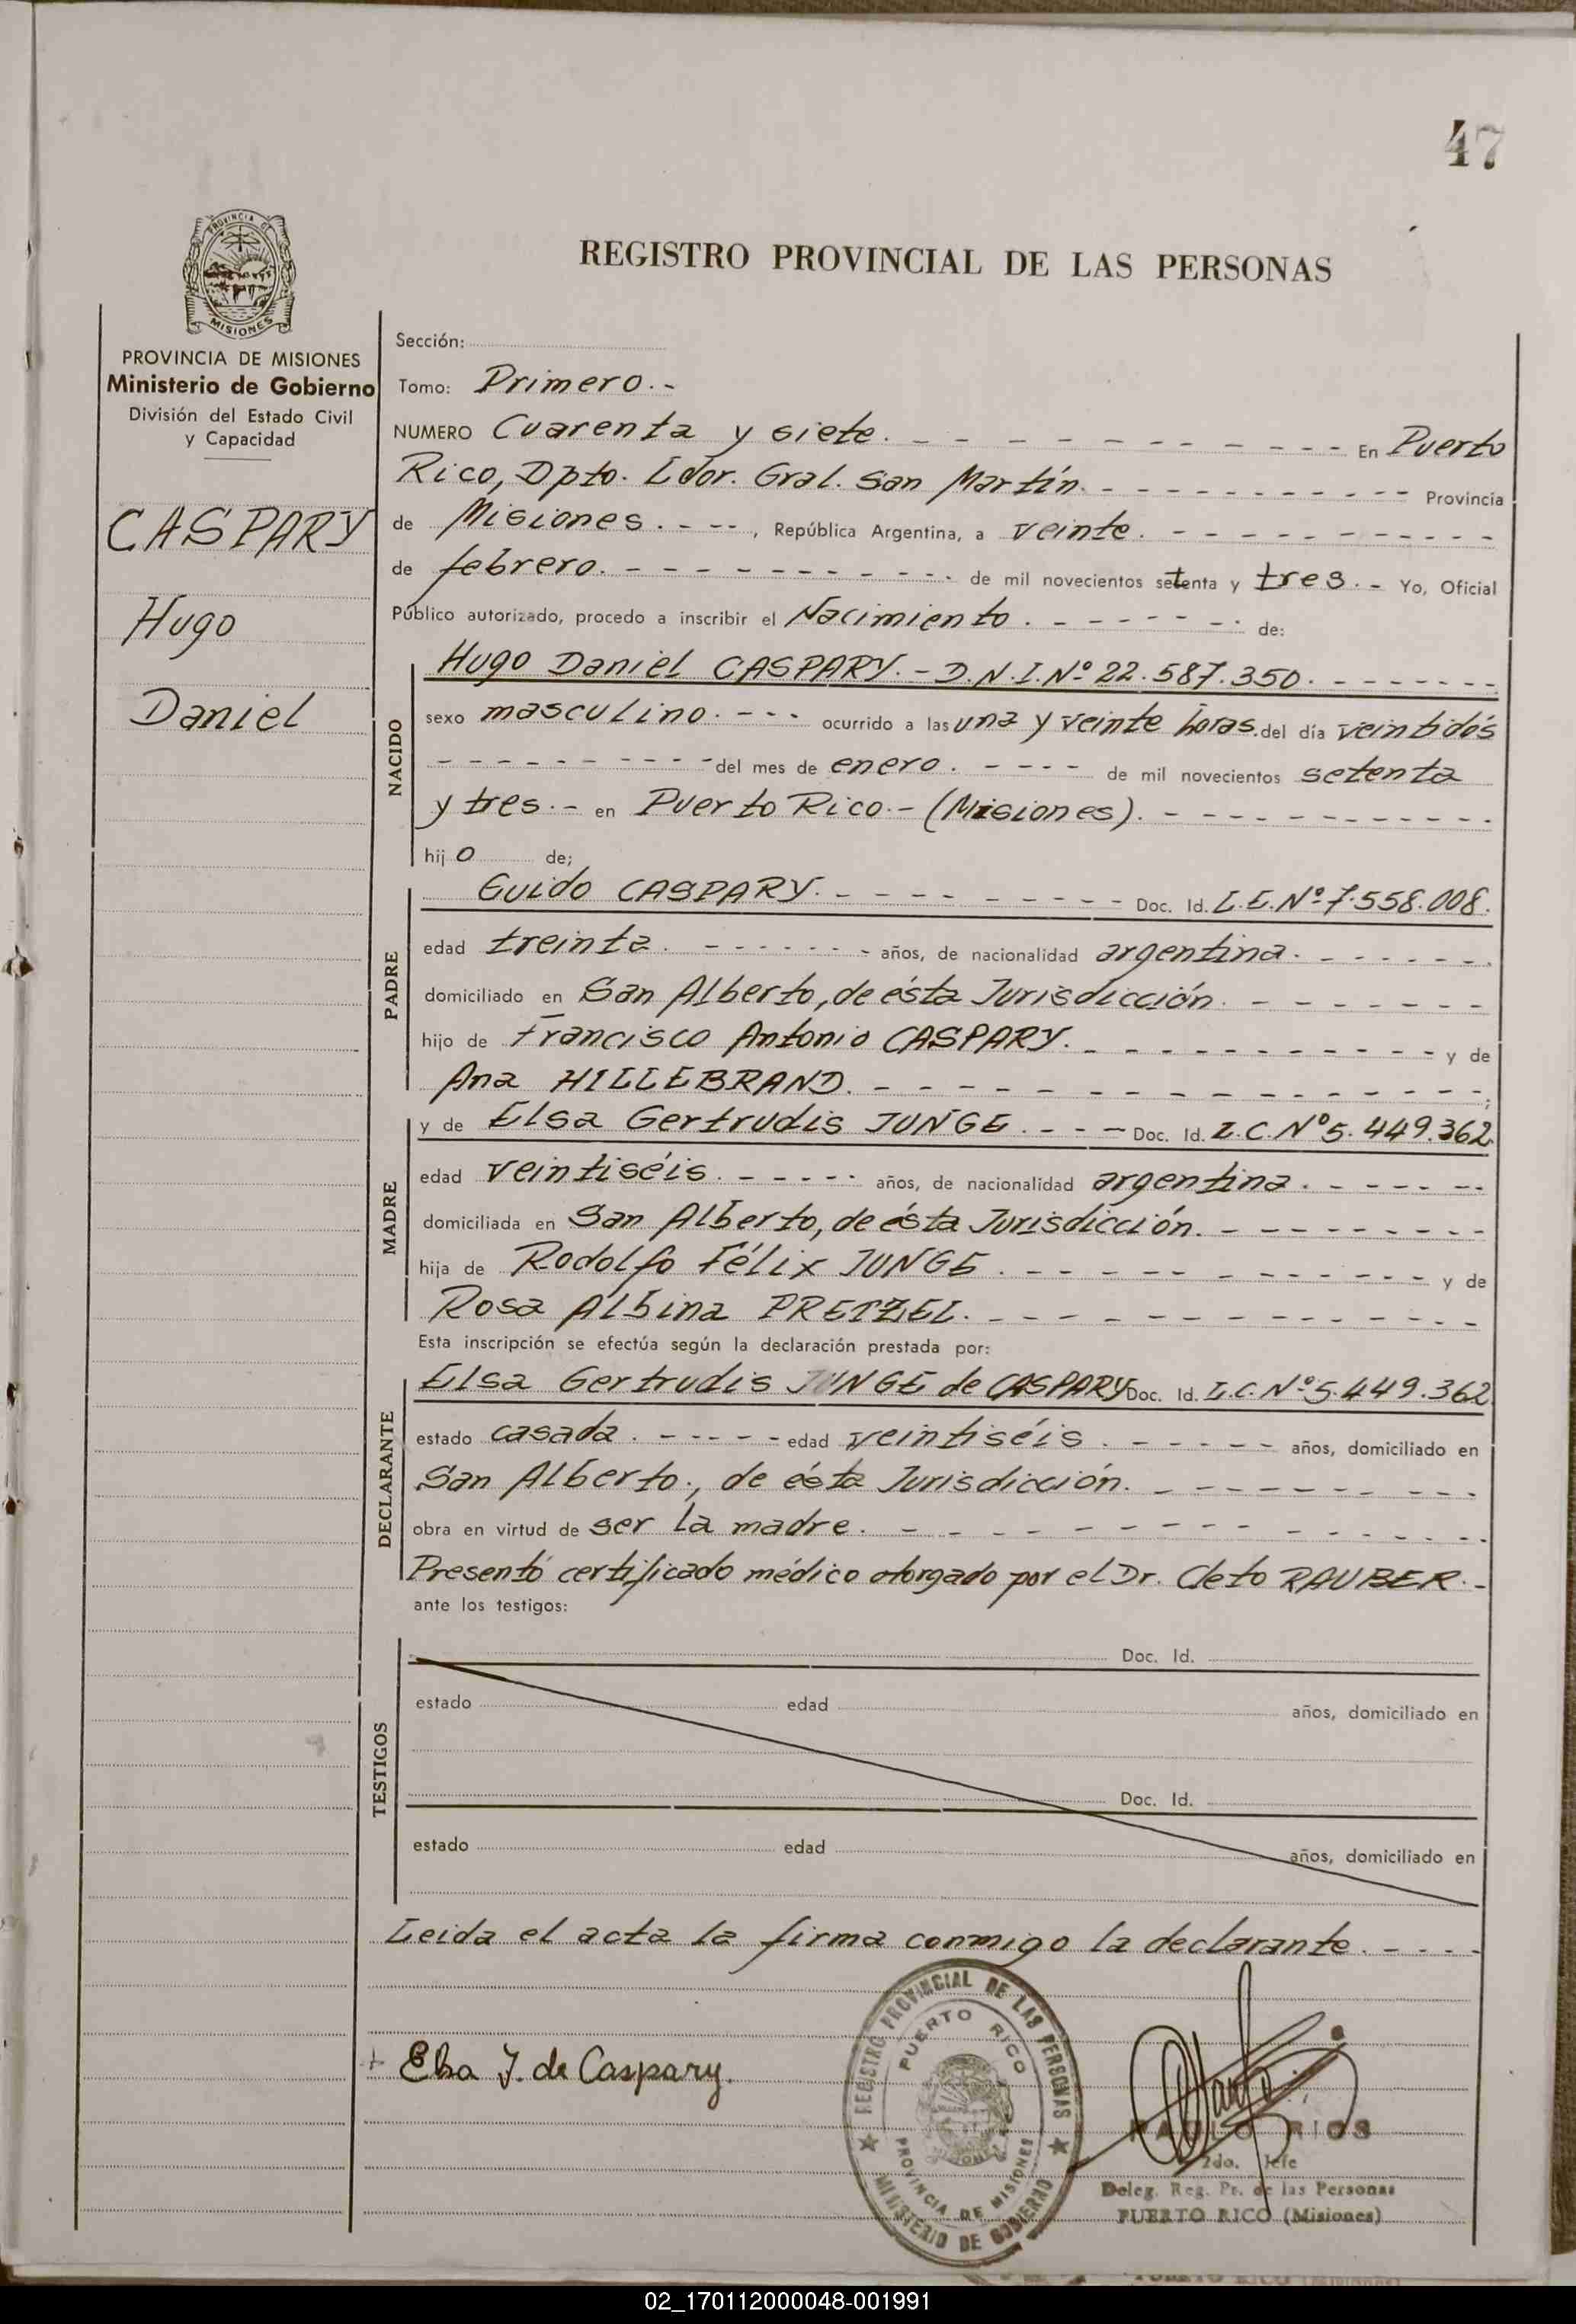 47
PROVINCIA DE
MISIONES
PROVINCIA DE MISIONES
Ministerio de Gobierno
División del Estado Civil
y Capacidad
CASPARY
Hugo
Daniel
REGISTRO PROVINCIAL DE LAS PERSONAS
Sección:
Tomo: Primero.-
NUMERO Cuarenta y siete. - - - - - - - - - - En Puerto
Rico, Dpto. Ldor. Gral. San Martín. - - - - - - - - - - Provincia
de Misiones. - - -, República Argentina, a veinte. - - - - - - - - - -
de febrero. - - - - - - - - - - de mil novecientos setenta y tres.- Yo, Oficial
Público autorizado, procedo a inscribir el Nacimiento. - - - - - - - de:
NACIDO
Hugo Daniel CASPARY.- D.N.I.Nº 22.587.350. - - - - - - -
sexo masculino. - - - ocurrido a las una y veinte horas. del día veintidós
- - - - - - - - - - del mes de enero. - - - - de mil novecientos setenta
y tres.- en Puerto Rico.- (Misiones). - - - - - - - - - - -
hijo de;
PADRE
Guido CASPARY. - - - - - - - - - Doc. Id. L.E.Nº 7.558.008.
edad treinta. - - - - - - - años, de nacionalidad argentina. - - - - - -
domiciliado en San Alberto, de ésta Jurisdicción. - - - - - - -
hijo de Francisco Antonio CASPARY. - - - - - - - - - - - y de
Ana HILLEBRAND. - - - - - - - - - - - - - - ;
MADRE
y de Elsa Gertrudis JUNGE. - - - Doc. Id. L.C.Nº 5.449.362
edad veintiséis. - - - - - años, de nacionalidad argentina. - - - - - -
domiciliada en San Alberto, de ésta Jurisdicción. - - - - - - - -
hija de Rodolfo Félix JUNGE. - - - - - - - - - - - - - y de
Rosa Albina PRETZEL. - - - - - - - - - - - - -
Esta inscripción se efectúa según la declaración prestada por:
DECLARANTE
Elsa Gertrudis JUNGE de CASPARY Doc. Id. L.C.Nº 5.449.362
estado casada. - - - - - edad veintiséis. - - - - - años, domiciliado en
San Alberto, de ésta Jurisdicción. - - - - - - - - -
obra en virtud de ser la madre. - - - - - - - - - - - - - -
Presentó certificado médico otorgado por el Dr. Cleto RAUBER.-
ante los testigos:
TESTIGOS
Doc. Id.
estado edad años, domiciliado en
Doc. Id.
estado edad años, domiciliado en
Leida el acta la firma conmigo la declarante. - - - -
+ Elsa J. de Caspary.
REGISTRO PROVINCIAL DE LAS PERSONAS
PUERTO RICO
PROVINCIA DE MISIONES
MINISTERIO DE GOBIERNO
RIOS
2do. Jefe
Deleg. Reg. Pr. de las Personas
PUERTO RICO (Misiones)
02_170112000048-001991